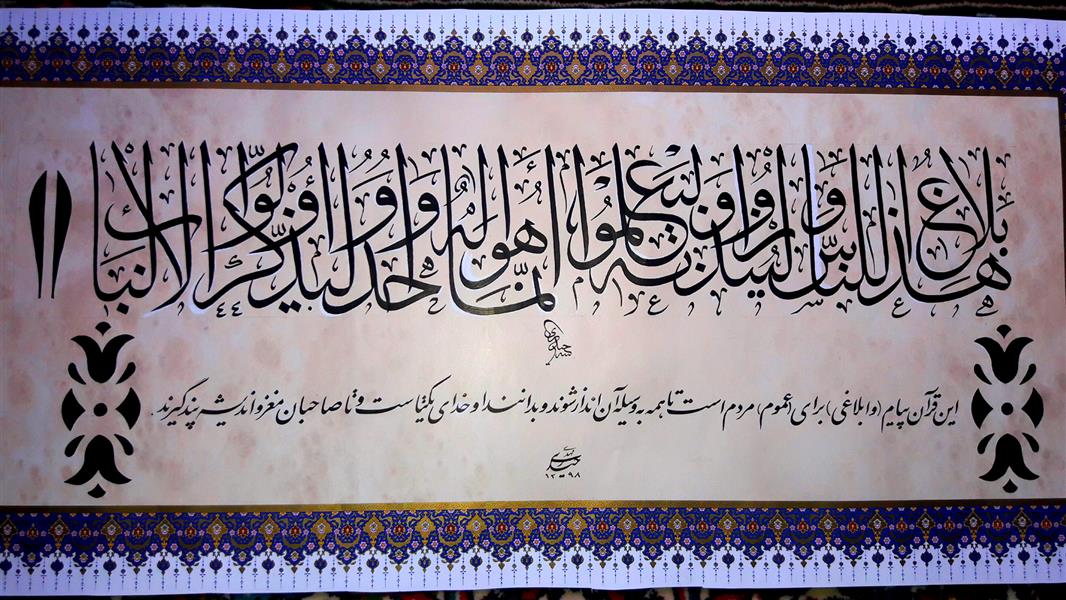 هذا بلاغ للناس ولينذروا به وليعلموا أنما هو إله واحد وليذكر أولوا الألباب
این قرآن پیام (و ابلاغی) برای (عموم) مردم است تا همه به وسیله آن انذار شوند و بدانند او خدای یکتاست و تا صاحبان مغز و اندیشه پند گیرند.
۱۳۹۸